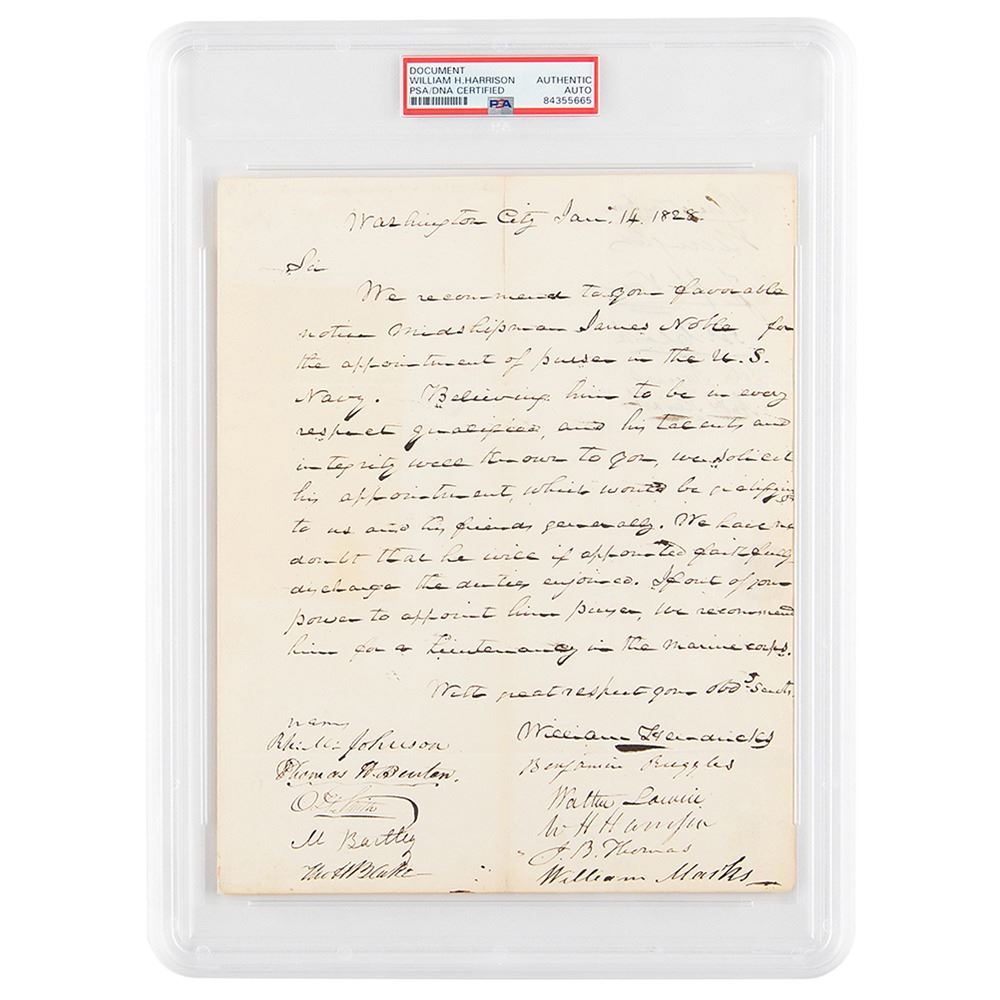 DOCUMENT
WILLIAM H.HARRISON AUTHENTIC
PSA/DNA CERTIFIED AUTO
PSA 84355665
Washington City Jan. 14. 1828.
Sir
We recommend to your favorable
notice Midshipman James Noble for
the appointment of purser in the U. S.
Navy. Believing him to be in every
respect qualified, and his talents and
integrity well known to you, we solicit
his appointment, which would be gratifying
to us and his friends generally. We have no
doubt that he will if appointed faithfully
discharge the duties enjoined. If out of your
power to appoint him purser, we recommend
him for a Lieutenancy in the marine corps.
With great respect your obd. Servts.
William Hendricks
Rh. M. Johnson Benjamin Ruggles
Thomas H. Benton. Walter Lowrie
O. H. Smith W H Harrison
M Bartley J. B. Thomas
Tho H Blake William Marks